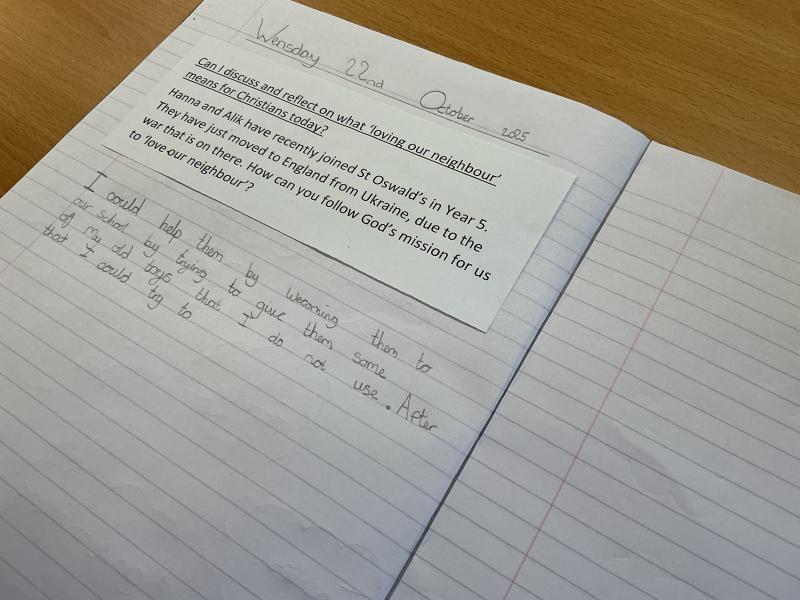 Wensday 22nd October 2025
Can I discuss and reflect on what 'loving our neighbour'
means for Christians today?
Hanna and Alik have recently joined St Oswald's in Year 5.
They have just moved to England from Ukraine, due to the
war that is on there. How can you follow God's mission for us
to 'love our neighbour'?
I could help them by wecoming them to
our school by trying to give them some
off my old toys that I do not use. After
that I could try to